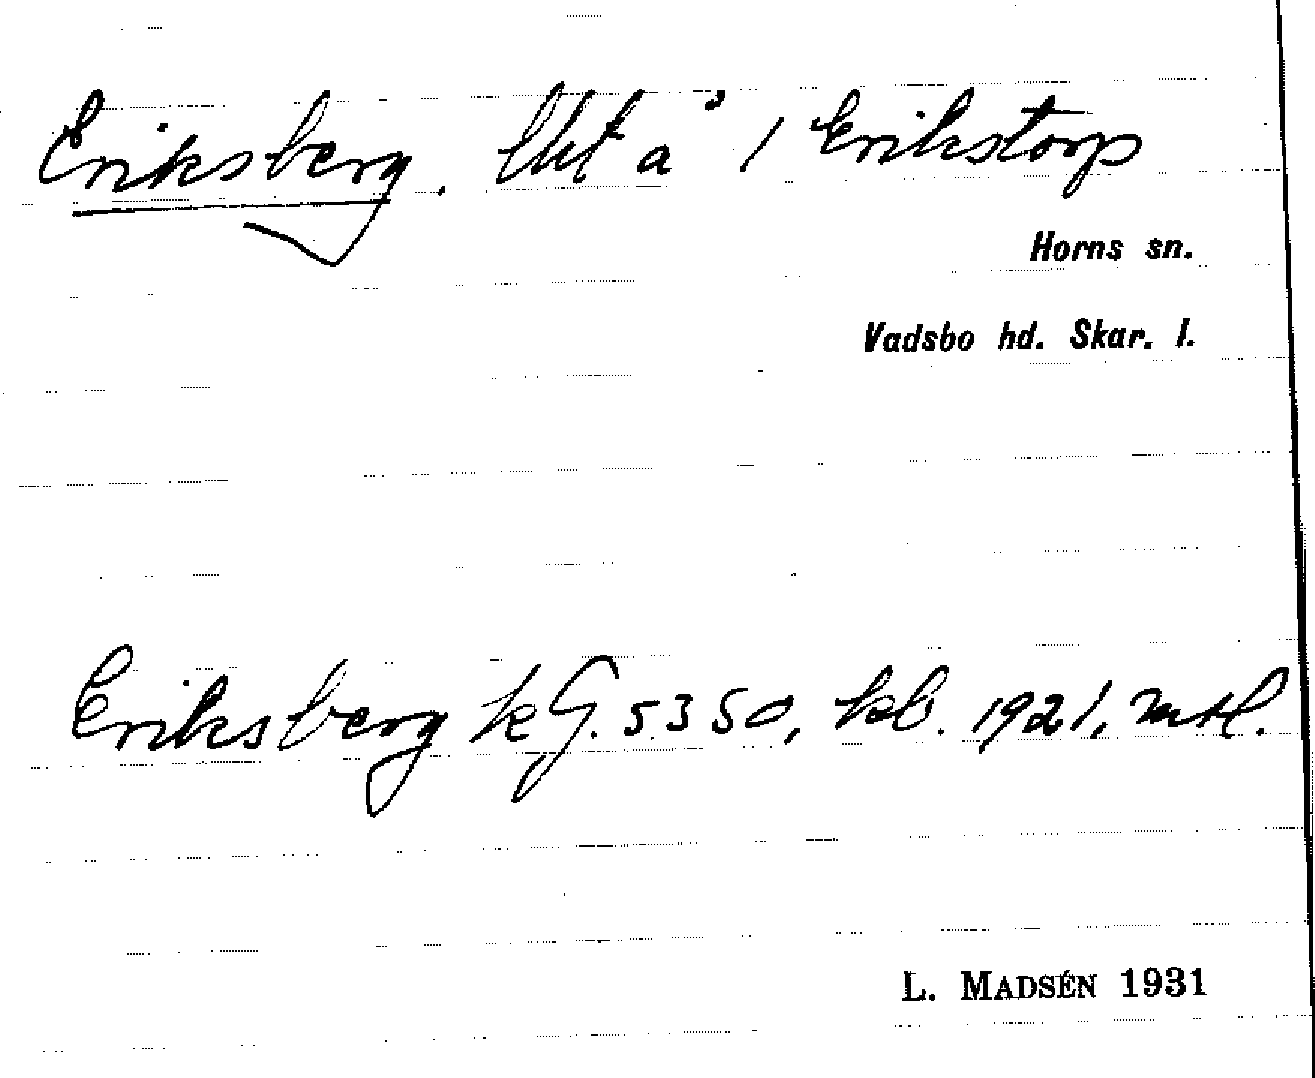 Eriksberg. lht å 1 Erikstorp
Horns sn.
Vadsbo hd. Skar. l.
Eriksberg kG. 5350, kb. 1921, mtl.
L. MADSÉN 1931